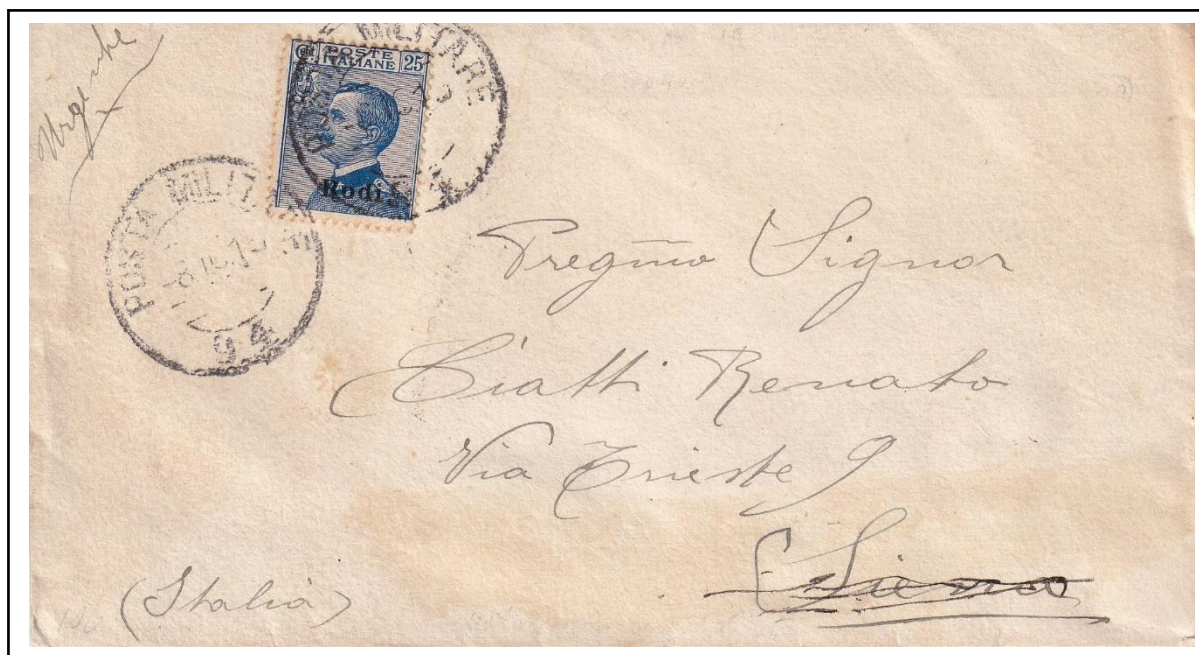 Urgente
POSTE ITALIANE 25
Rodi
POSTA MILITARE
POSTA MILITARE
94
Pregmo Signor
Ciatti Renato
Via Trieste 9
Siena
(Italia)